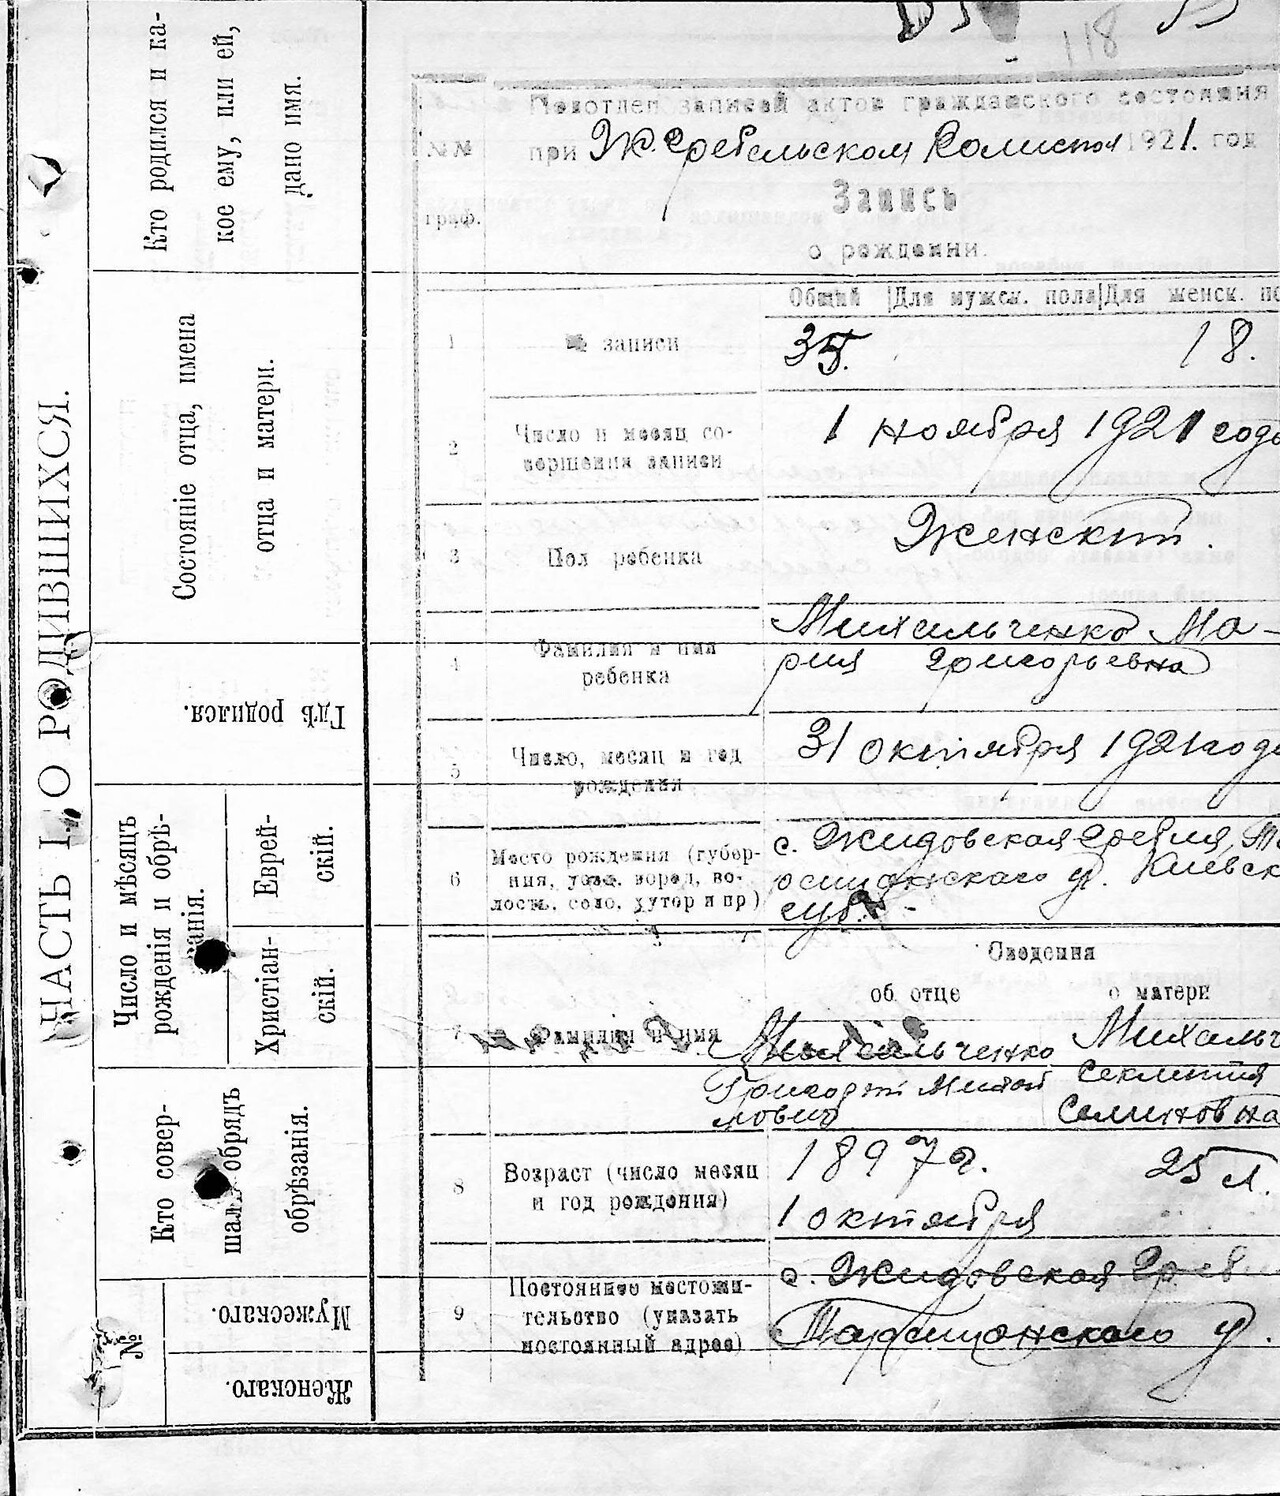 118
ЧАСТЬ I. О РОДИВШИХСЯ.
Кто родился и ка-
кое ему, или ей,
дано имя.
Состояніе отца, имена
отца и матери.
Гдѣ родился.
Число и мѣсяцъ
рожденія и обрѣ-
занія.
Еврей-
скій.
Христіан-
скій.
Кто совер-
шалъ обрядъ
обрѣзанія.
№
Мужескаго.
Женскаго.
№№
граф.
Подотдел записей актов гражданского состояния
при Ж. Гребельском Волисполк 1921. год
Запись
о рождении.
Общий Для мужск. пола Для женск. по
1 № записи 35. 18.
2 Число и месяц со-
вершения записи
1 ноября 1921 года
3 Пол ребенка Женский.
4 Фамилия и имя
ребенка
Михальченко Ма-
рия Григорьевна
5 Число, месяц и год
рождения
31 октября 1921 года
6 Место рождения (губер-
ния, уезд, город, во-
лость, село, хутор и пр)
с. Жидовская Гребля, Та
Киевск
губ.
Сведения
об отце о матери
7 Фамилия и имя
Михальченко
Григорий
Михальч
Секлетия
Семиновна
8 Возраст (число месяц
и год рождения)
1897 г.
1 октября
25 л.
9 Постоянное местожи-
тельство (указать
постоянный адрес)
с. Жидовская Греб
Таращанского у.